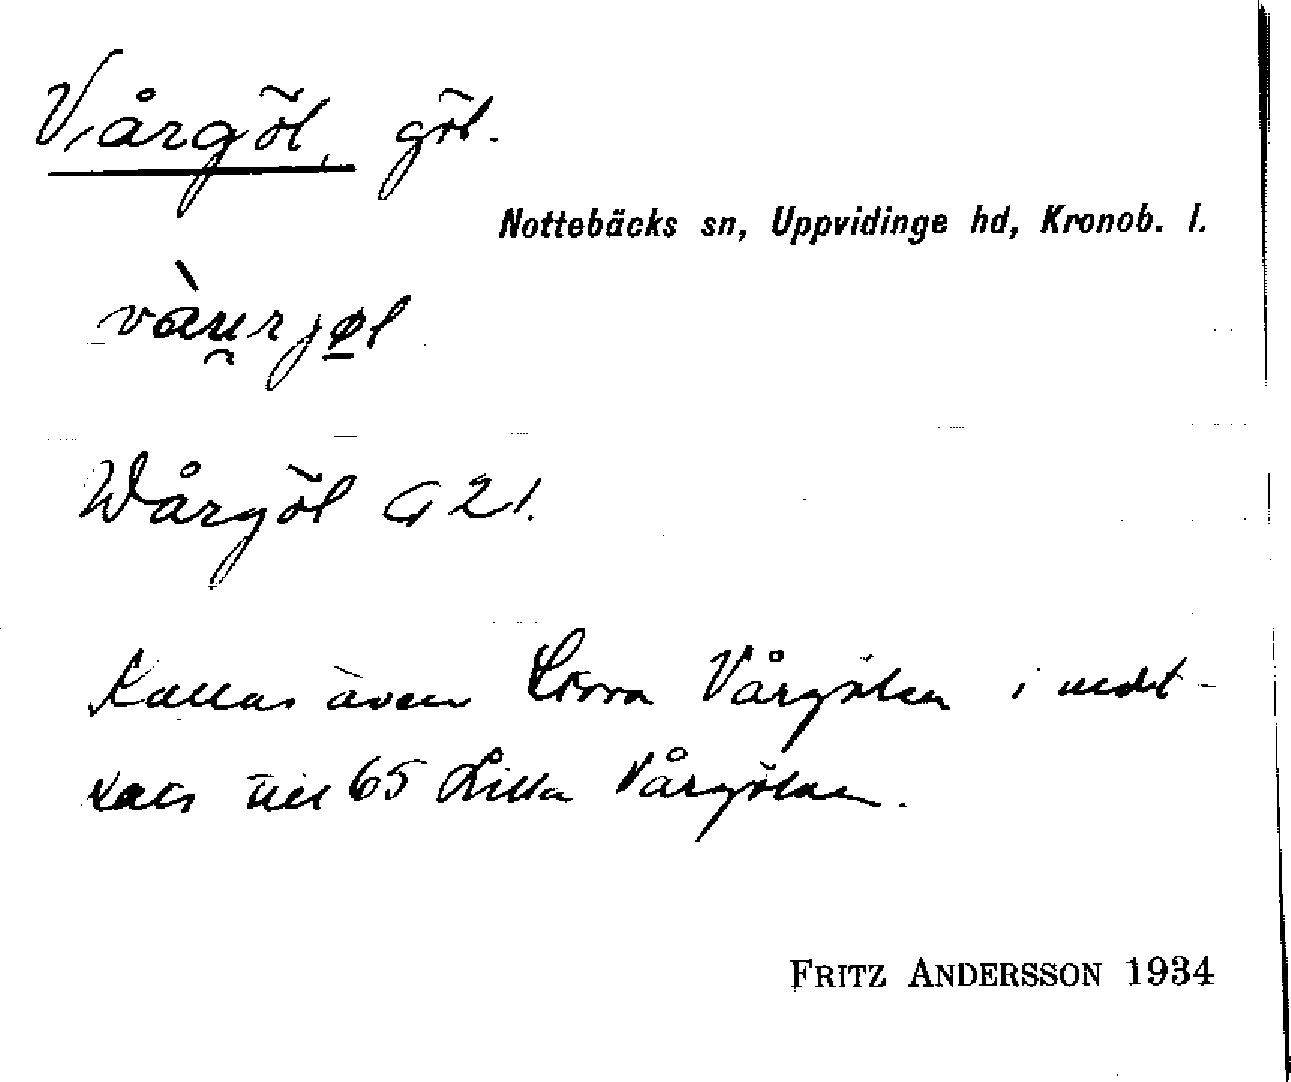 Vårgöl, göl.
Nottebäcks sn, Uppvidinge hd, Kronob. l.
Wårgöl G 21.
Kallas även Stora Vårgölen i mot-
sats till 65 Lilla Vårgölen.
FRITZ ANDERSSON 1934